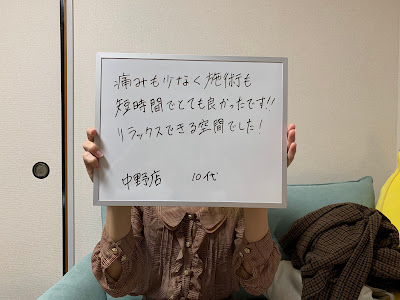 痛みも少なく施術も
短時間でとても良かったです!!
リラックスできる空間でした!
中野店 10代